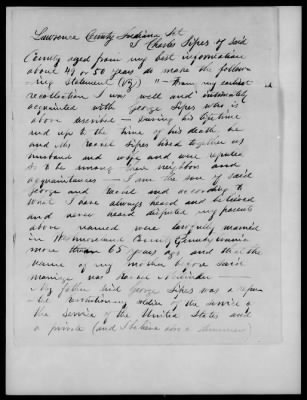 Lawrence County Indiana Sct
I Charles Sipes of said
County aged from my best information
about 49 or 50 years do make the follow-
ing statement (Viz) "- From my earliest
recollection I was well and intimately
acquainted with George Sipes who is
above described - during his life time
and up to the time of his death, he
and Mrs Sipes lived together as
husband and wife and were reputed
so to be among their neighbors and
acquaintances - I am the son of said
George and and according to
what I have always heard and believed
and never heard disputed my parents
above named were lawfully married
in County Pennsylvania
more than 65 years ago and that the
name of my mother before said
marriage was
My father said George Sipes was a
Revolutionary soldier of the service of
the service of the United States and
a private (and I believe also a drummer)